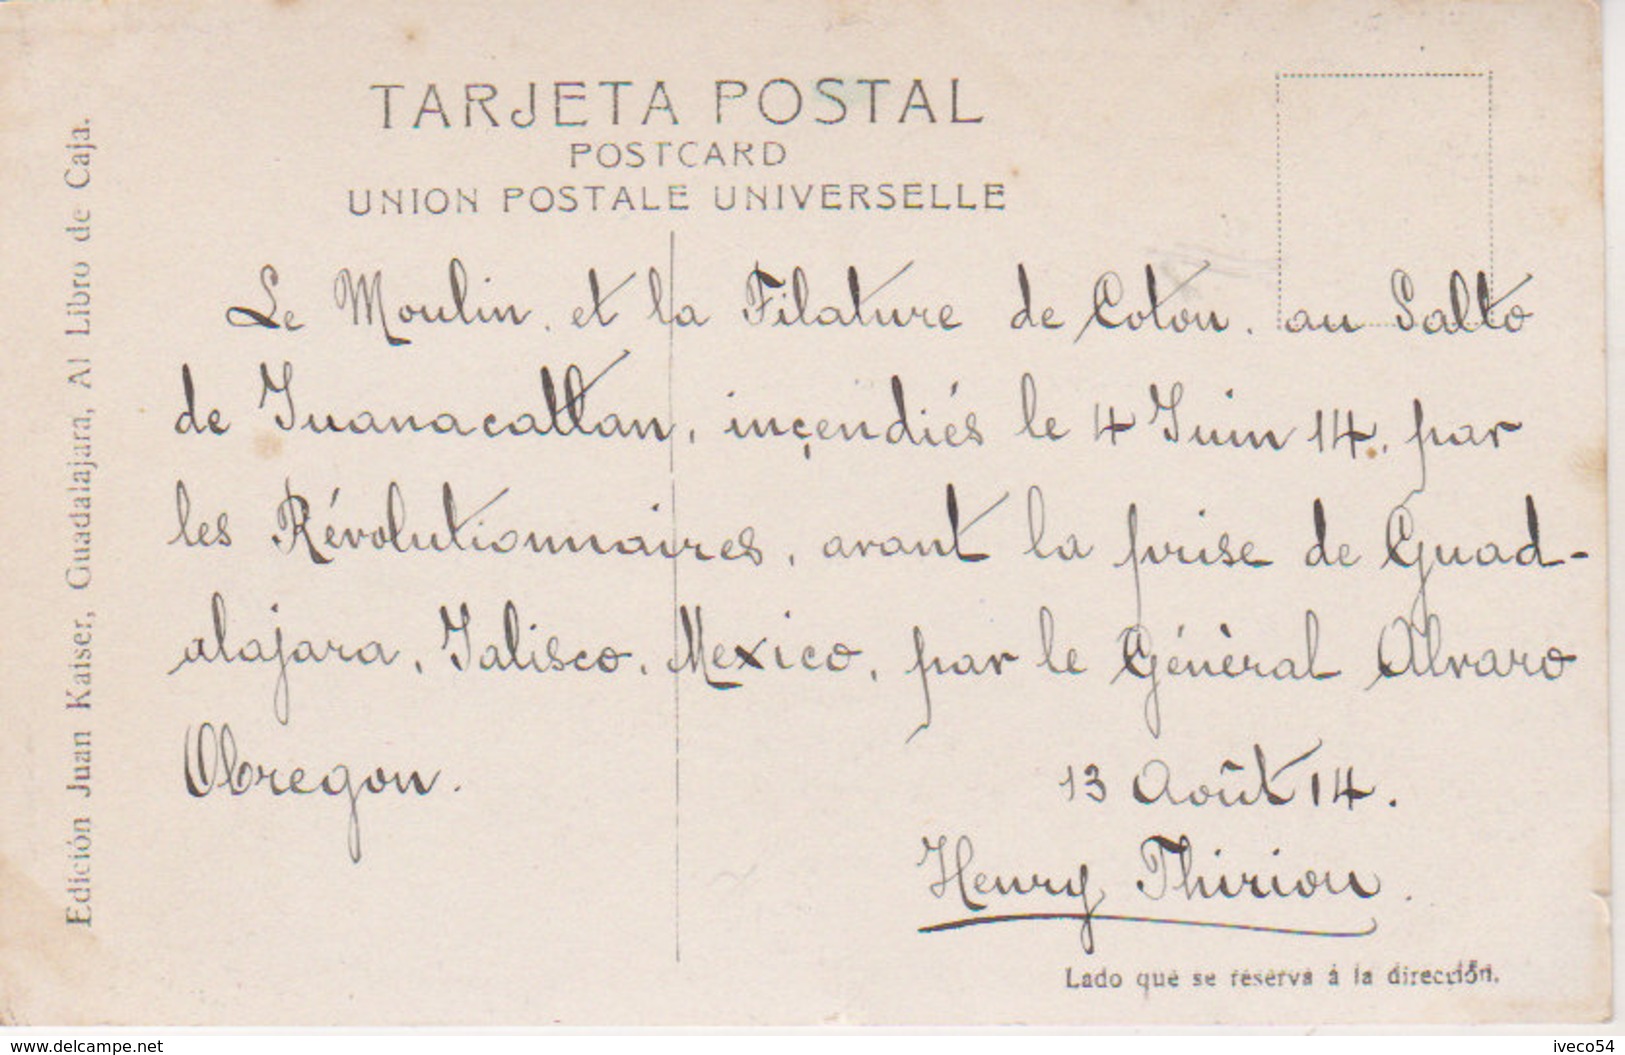 TARJETA POSTAL
POSTCARD
UNION POSTALE UNIVERSELLE
Edición Juan Kaiser, Guadalajara, Al Libro de Caja.
Le Moulin. et la Filature de Coton. au Salto
de Juanacatlan, inçendiés le 4 Juin 14. par
les Révolutionnaires, avant la prise de Guad-
alajara, Jalisco, Mexico, par le Génèral Alvaro
Obregon.
13 Août 14.
Henry Thirion.
Lado que se reserva á la dirección.
www.delcampe.net
iveco54